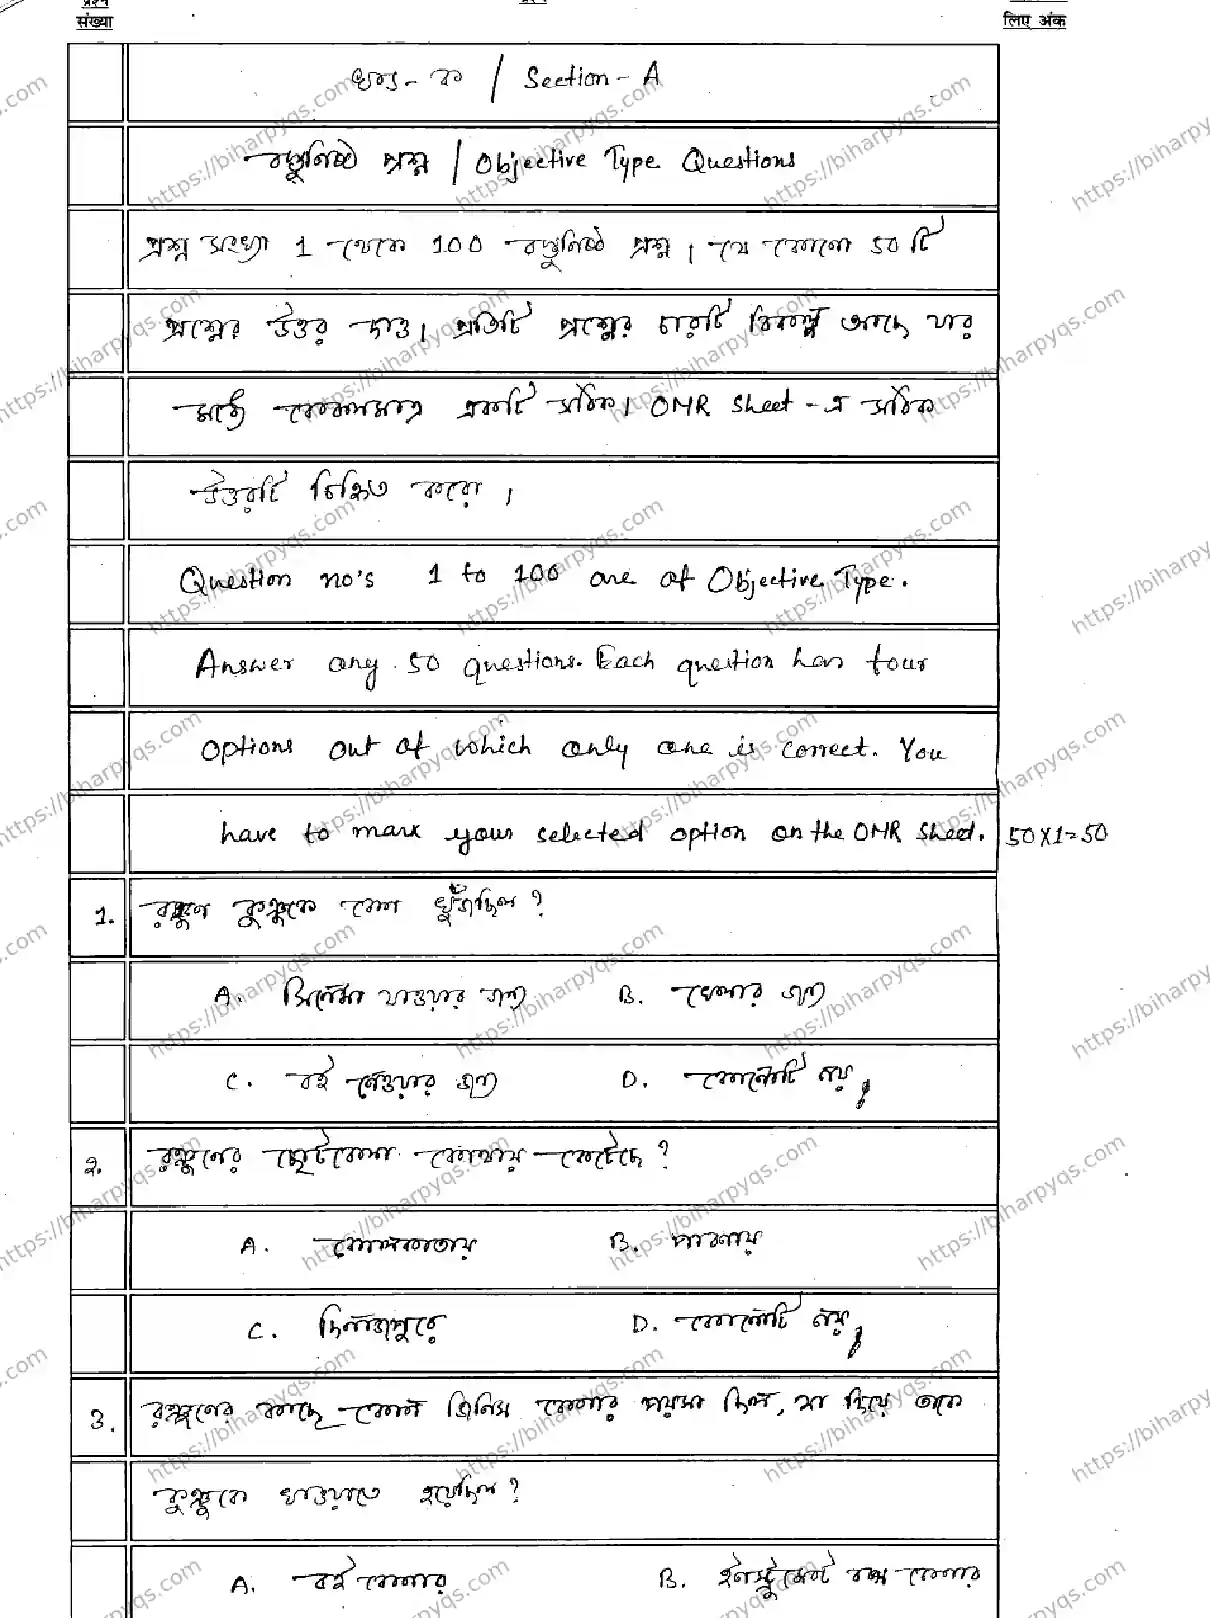 प्रश्न
संख्या
प्रश्न
लिए अंक
খণ্ড - ক / Section - A
বস্তুনিষ্ঠ প্রশ্ন / Objective Type Questions
প্রশ্ন সংখ্যা 1 থেকে 100 বস্তুনিষ্ঠ প্রশ্ন। যে কোনো 50 টি
প্রশ্নের উত্তর দাও। প্রতিটি প্রশ্নের চারটি বিকল্প আছে যার
মধ্যে কেবলমাত্র একটি সঠিক। OMR Sheet - এ সঠিক
উত্তরটি চিহ্নিত করো।
Question no's 1 to 100 are of Objective Type.
Answer any 50 questions. Each question has four
options out of which only one is correct. You
have to mark your selected option on the OMR Sheet. 50X1=50
1. কুঙ্কুকে কেন খুঁজছিল?
A. সিনেমা যাওয়ার জন্য B. খেলার জন্য
C. বই নেওয়ার জন্য D. কোনোটি নয়
2. ছোটবেলা কোথায় কেটেছে?
A. কোলকাতায় B. পাবনায়
C. দিনাজপুরে D. কোনোটি নয়
3. কাছে কোন জিনিস কেনার পয়সা ছিল, যা দিয়ে তাকে
কুঙ্কুকে খাওয়াতে হয়েছিল?
A. বই কেনার B. ইনস্ট্রুমেন্ট বক্স কেনার
https://biharpyqs.com